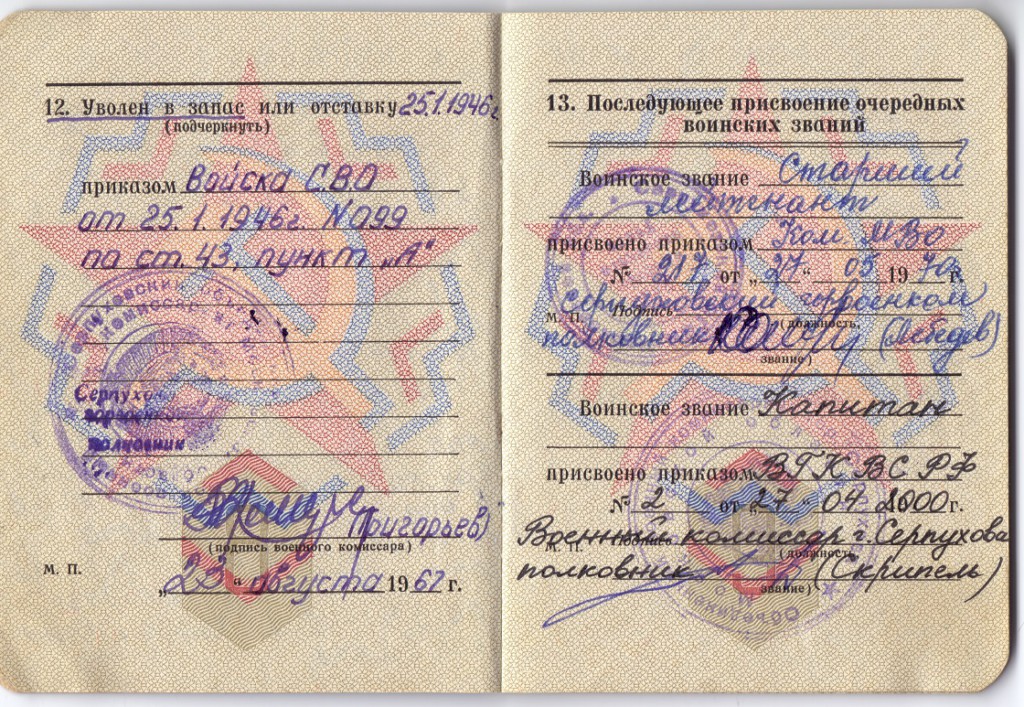 12. Уволен в запас или отставку 25.1.1946г
(подчеркнуть)
приказом Войска С.В.О
от 25.1.1946г. №099
по ст. 43, пункт „А"
Серпухов
горвоенком
полковник
Григорьев)
(подпись военного комиссара)
М. П.
„23" августа 1967 г.
13. Последующее присвоение очередных
воинских званий
Воинское звание Старший
лейтенант
присвоено приказом Ком МВО
№ 217 от „27" 05 1970 г.
Серпуховский горвоенком
М. П. Подпись (должность,
полковник (Лебедев)
звание)
Воинское звание Капитан
присвоено приказом ВГК ВС РФ
№ 2 от „27" 04 2000 г.
Военный комиссар г. Серпухова
М. П. Подпись (должность
полковник (Скрипель)
звание)